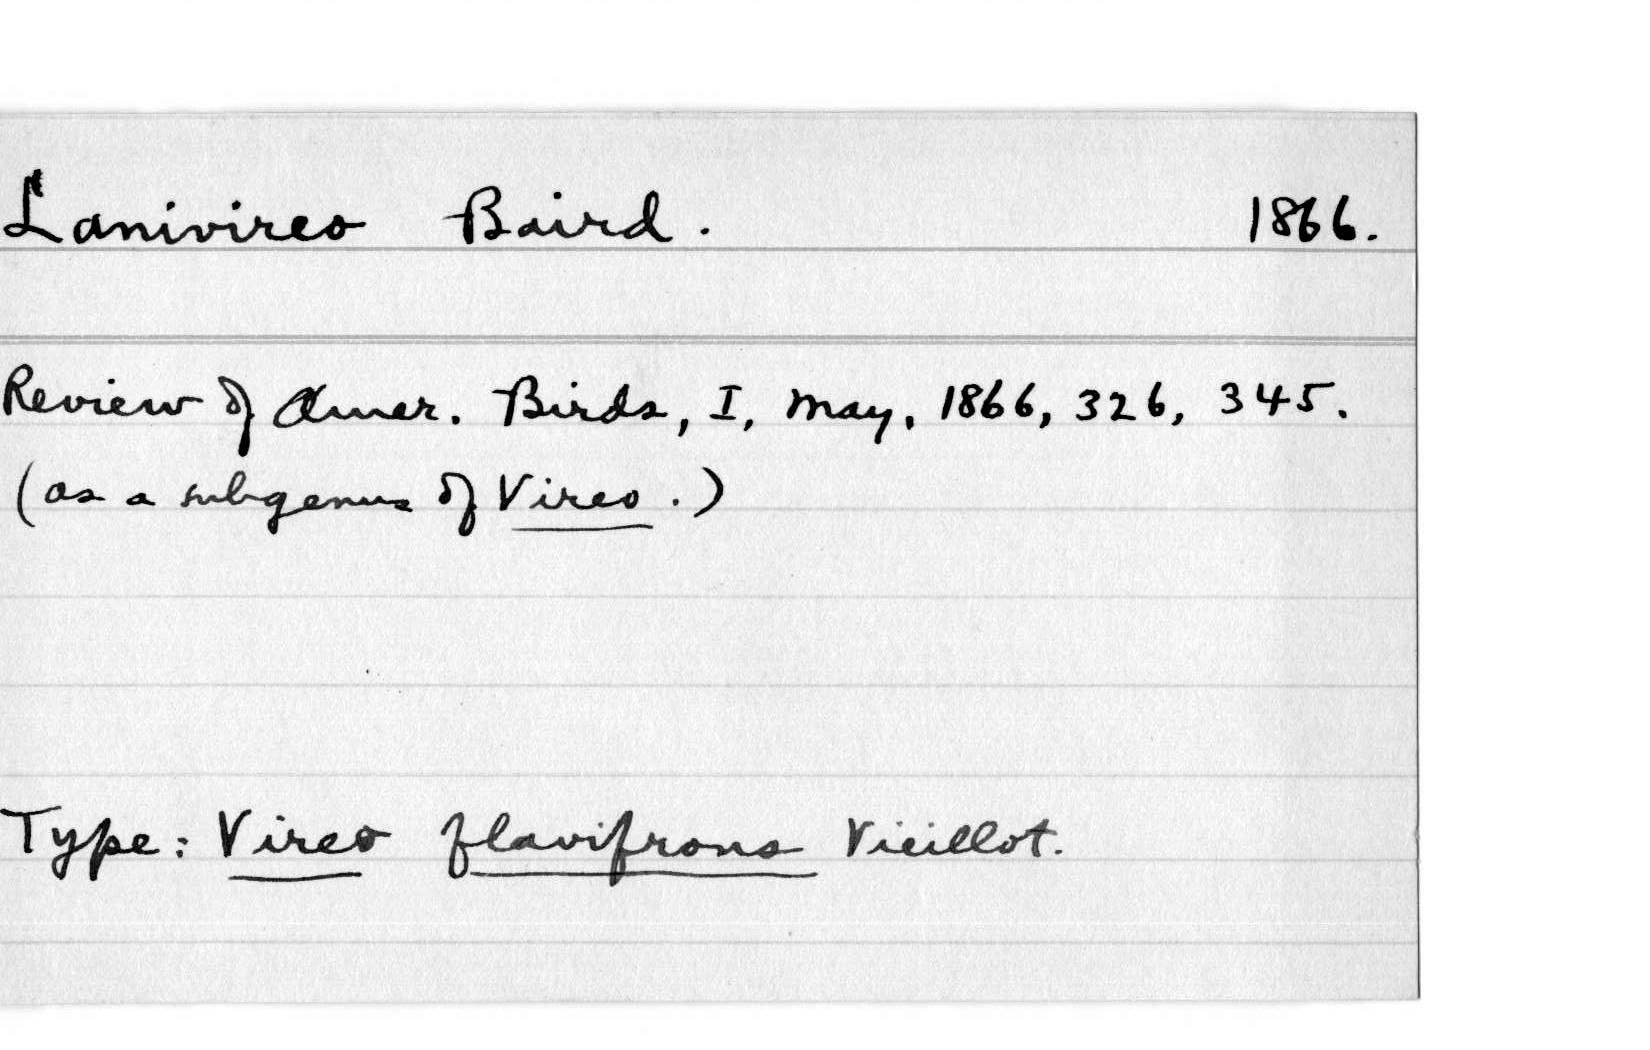 Lanivireo Baird. 1866.
Review of Amer. Birds, I, May, 1866, 326, 345.
(as a subgenus of Vireo.)
Type: Vireo flavifrons Vieillot.